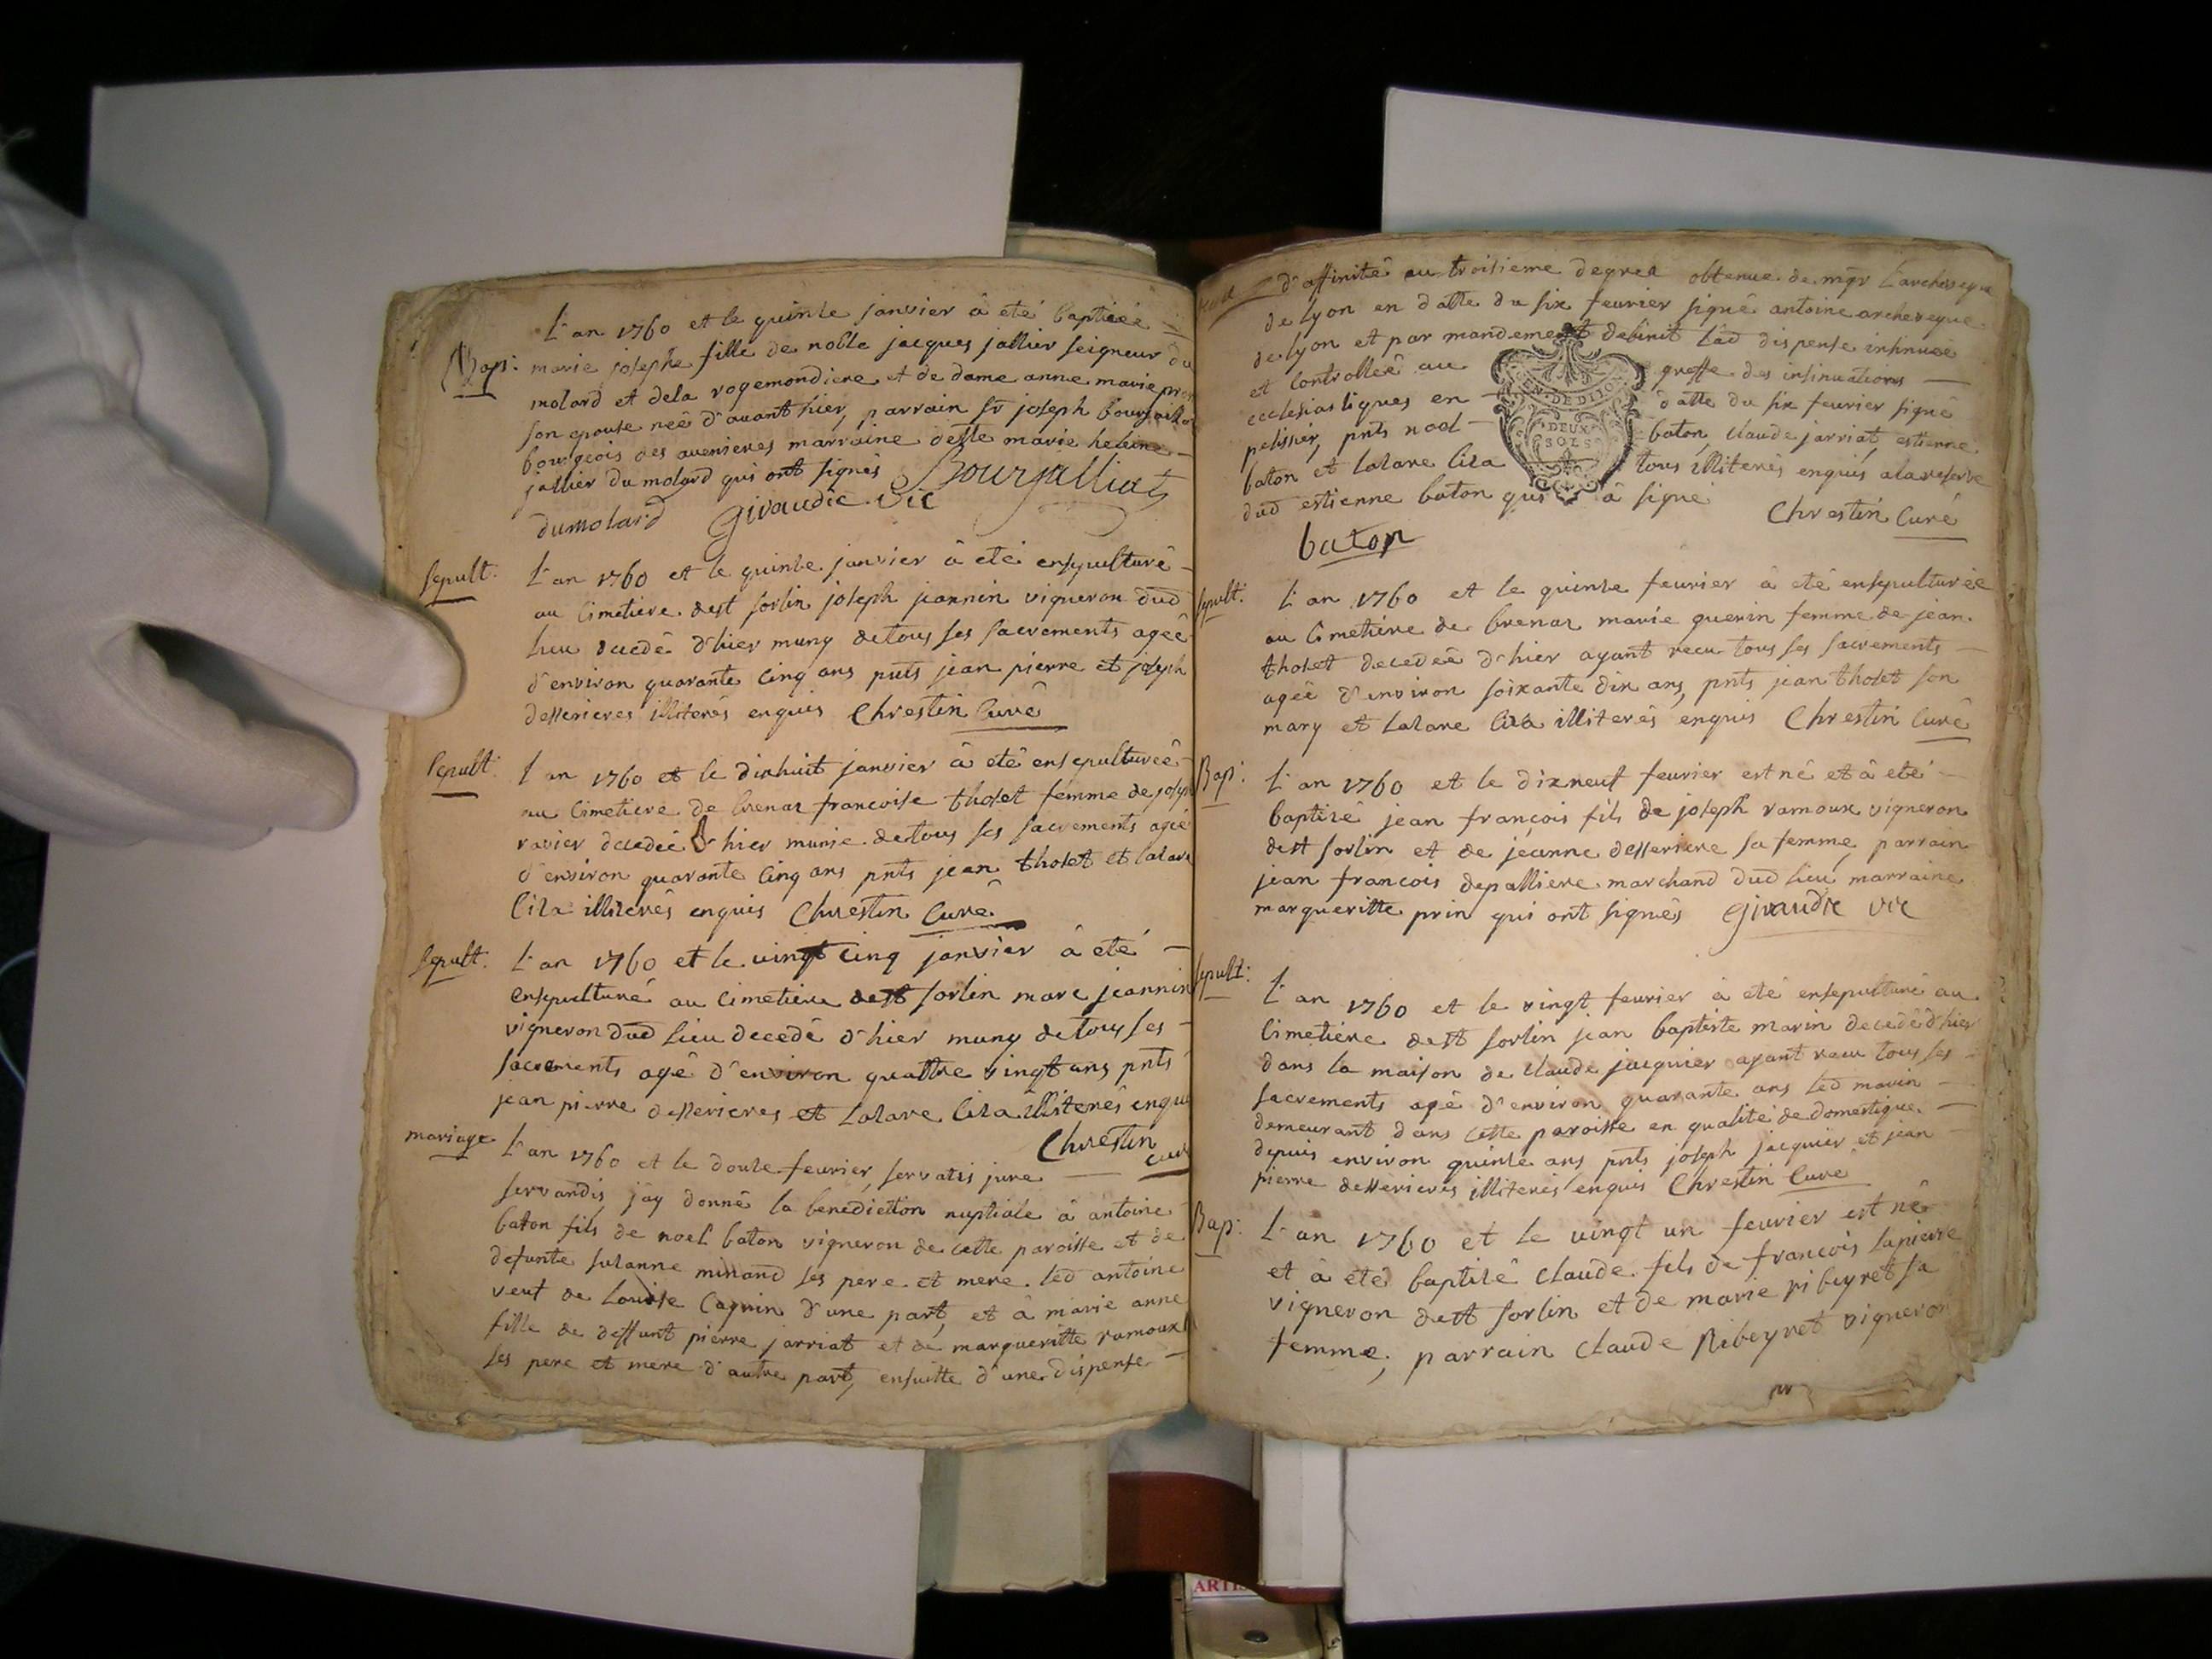 L'an 1760 et le quinze janvier à eté baptisée
Bap: marie josephe fille de noble jacques jallier seigneur du
molard et dela rogemondiere et de dame anne marie
son epouse neê d'avant hier, parrain sr joseph
bourgeois des avenieres marraine delle marie helene
jallier du molard qui ont signés Bourjalliat
dumolard Giraudie vic
Sepult. L'an 1760 et le quinze janvier à eté ensepulturé
au Cimetiere dest sorlin joseph jeannin vigneron dud
lieu decedé d'hier muny detous ses sacrements ageê
d'environ quarante cinq ans pnts jean pierre et joseph
desserieres illiterês enquis Chrestin Curê
Sepult. L'an 1760 et le dixhuit janvier à eté ensepultureê
au Cimetiere de brenaz francoise tholet femme de joseph
ravier decedeé d'hier munie detous ses sacrements ageé
d'environ quarante cinq ans pnts jean tholet et lazare
Ciza illiterês enquis Chrestin Curé
Sepult. L'an 1760 et le vingt cinq janvier à eté
ensepulturé au Cimetiere dest sorlin marc jeannin
vigneron dud lieu decedé d'hier muny detous ses
sacrements agé d'environ quattre vingt ans pnts
jean pierre desserieres et Lazare Ciza illiterês enquis
Chrestin
curé
mariage L'an 1760 et le douze fevrier, servatis jure
servandis j'ay donnê la benediction nuptiale à antoine
baton fils de noel baton vigneron de cette paroisse et de
defunte suzanne minand ses pere et mere. led antoine
veuf de Louise Caquin d'une part, et à marie anne
fille de deffunt pierre jarriat et de margueritte ramoux
ses pere et mere d'autre part, ensuitte d'une dispense
d'affinité au troisieme degrez obtenue de mgr Larcheveque
de lyon en datte du six fevrier signé antoine archeveque
de lyon et par mandement lad dispense insinueê
et Controlleê au greffe des insinuations
GEN. DE DIJON
DEUX
SOLS
ecclesiastiques en datte du six fevrier signé
pelissier, pnts noel baton, claude jarriat, estienne
baton et Lazare Ciza tous illiterês enquis alareserve
dud estienne baton qui à signé Chrestin Curé
baton
Sepult. L'an 1760 et le quinze fevrier à eté ensepultureê
au Cimetiere de brenaz marie guerin femme de jean
tholet decedeê d'hier ayant recu tous ses sacrements
ageê d'environ soixante dix ans, pnts jean tholet son
mary et Lazare Ciza illiterês enquis Chrestin Curê
Bap: L'an 1760 et le dixneuf fevrier est né et à eté
baptizê jean françois fils de joseph ramoux vigneron
dest sorlin et de jeanne desseriere sa femme, parrain
jean francois depalliere marchand dud lieu marraine
margueritte prin qui ont signês Giraudie vic
Sepult: L'an 1760 et le vingt fevrier à eté ensepulturé au
Cimetiere dest sorlin jean baptiste marin decedé d'hier
dans la maison de Claude jacquier ayant recu tous ses
sacrements agé d'environ quarante ans led marin
demeurant dans cette paroisse en qualité de domestique
depuis environ quinze ans pnts joseph jacquier et jean
pierre desserieres illiterés enquis Chrestin Curé
Bap: L'an 1760 et le vingt un fevrier est né
et à eté baptizê Claude fils de francois lapierre
vigneron dest sorlin et de marie ribeyret sa
femme, parrain Claude Ribeyret vigneron